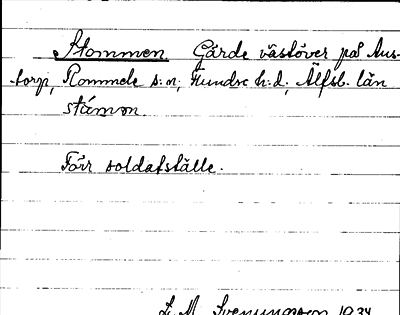 Stommen. Gärde västöver på Aus-
torp, Rommele s:n, Flundre h:d, Älfsb. län
stámən.
Förr soldatställe.
Svenungsson 1934